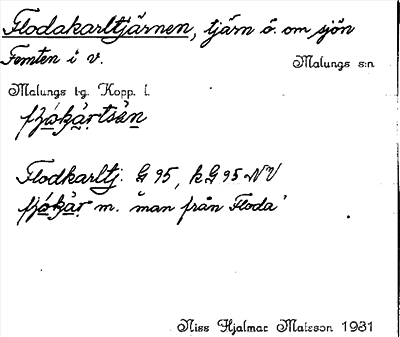 Flodakarltjärnen, tjärn ö. om sjön
Femten i v.
Malungs s:n
Malungs tg. Kopp. l.
Flodkarltj. G 95, kG 95 NV
m. "man från Floda"
Nils Hjalmar Matsson 1931